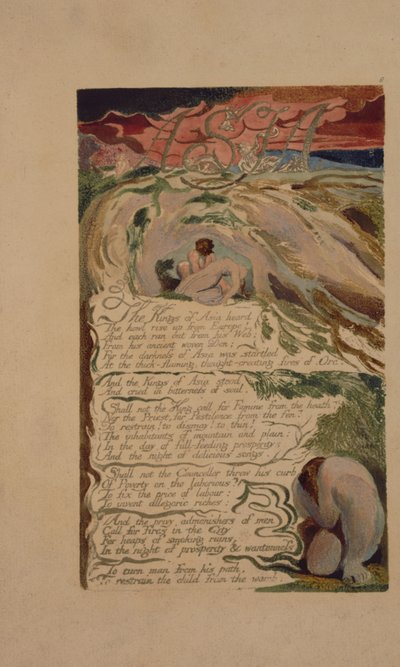 6
ASIA
The Kings of Asia heard
The howl rise up from Europe!
And each ran out from his Web;
From his ancient woven Den;
For the darkness of Asia was startled
At the thick-flaming, thought-creating fires of Orc.
And the Kings of Asia stood
And cried in bitterness of soul.
Shall not the King call for Famine from the heath?
Nor the Priest, for Pestilence from the fen?
To restrain! to dismay! to thin!
The inhabitants of mountain and plain;
In the day of full-feeding prosperity;
And the night of delicious songs
Shall not the Councellor throw his curb
Of Poverty on the laborious?
To fix the price of labour;
To invent allegoric riches:
And the privy admonishers of men
Call for Fires in the City
For heaps of smoking ruins,
In the night of prosperity & wantonness
To turn man from his path,
To restrain the child from the womb,